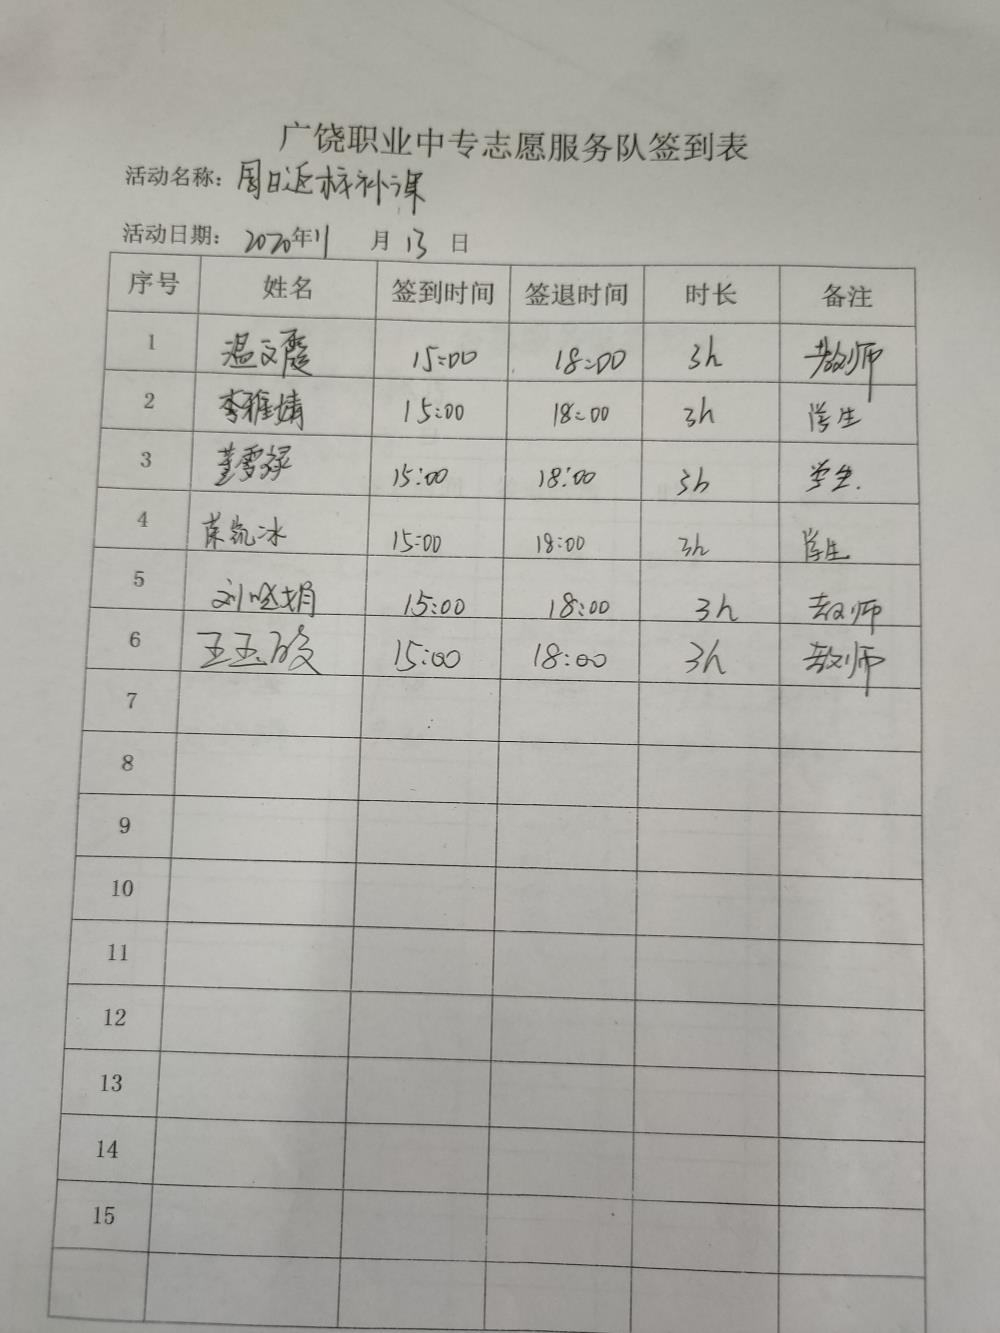 广饶职业中专志愿服务队签到表
活动名称：周日返校补课
活动日期：2020年11月13日
序号 姓名 签到时间 签退时间 时长 备注
1 温文霞 15:00 18:00 3h 教师
2 李雅婧 15:00 18:00 3h 学生
3 董雯禄 15:00 18:00 3h 学生.
4 荣凯冰 15:00 18:00 3h 学生
5 刘晓娟 15:00 18:00 3h 教师
6 王玉姣 15:00 18:00 3h 教师
7
8
9
10
11
12
13
14
15